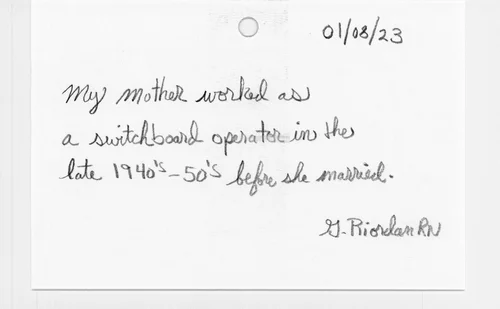 01/08/23
My mother worked as
a switchboard operator in the
late 1940's-50's before she married.
G. Riordan RN